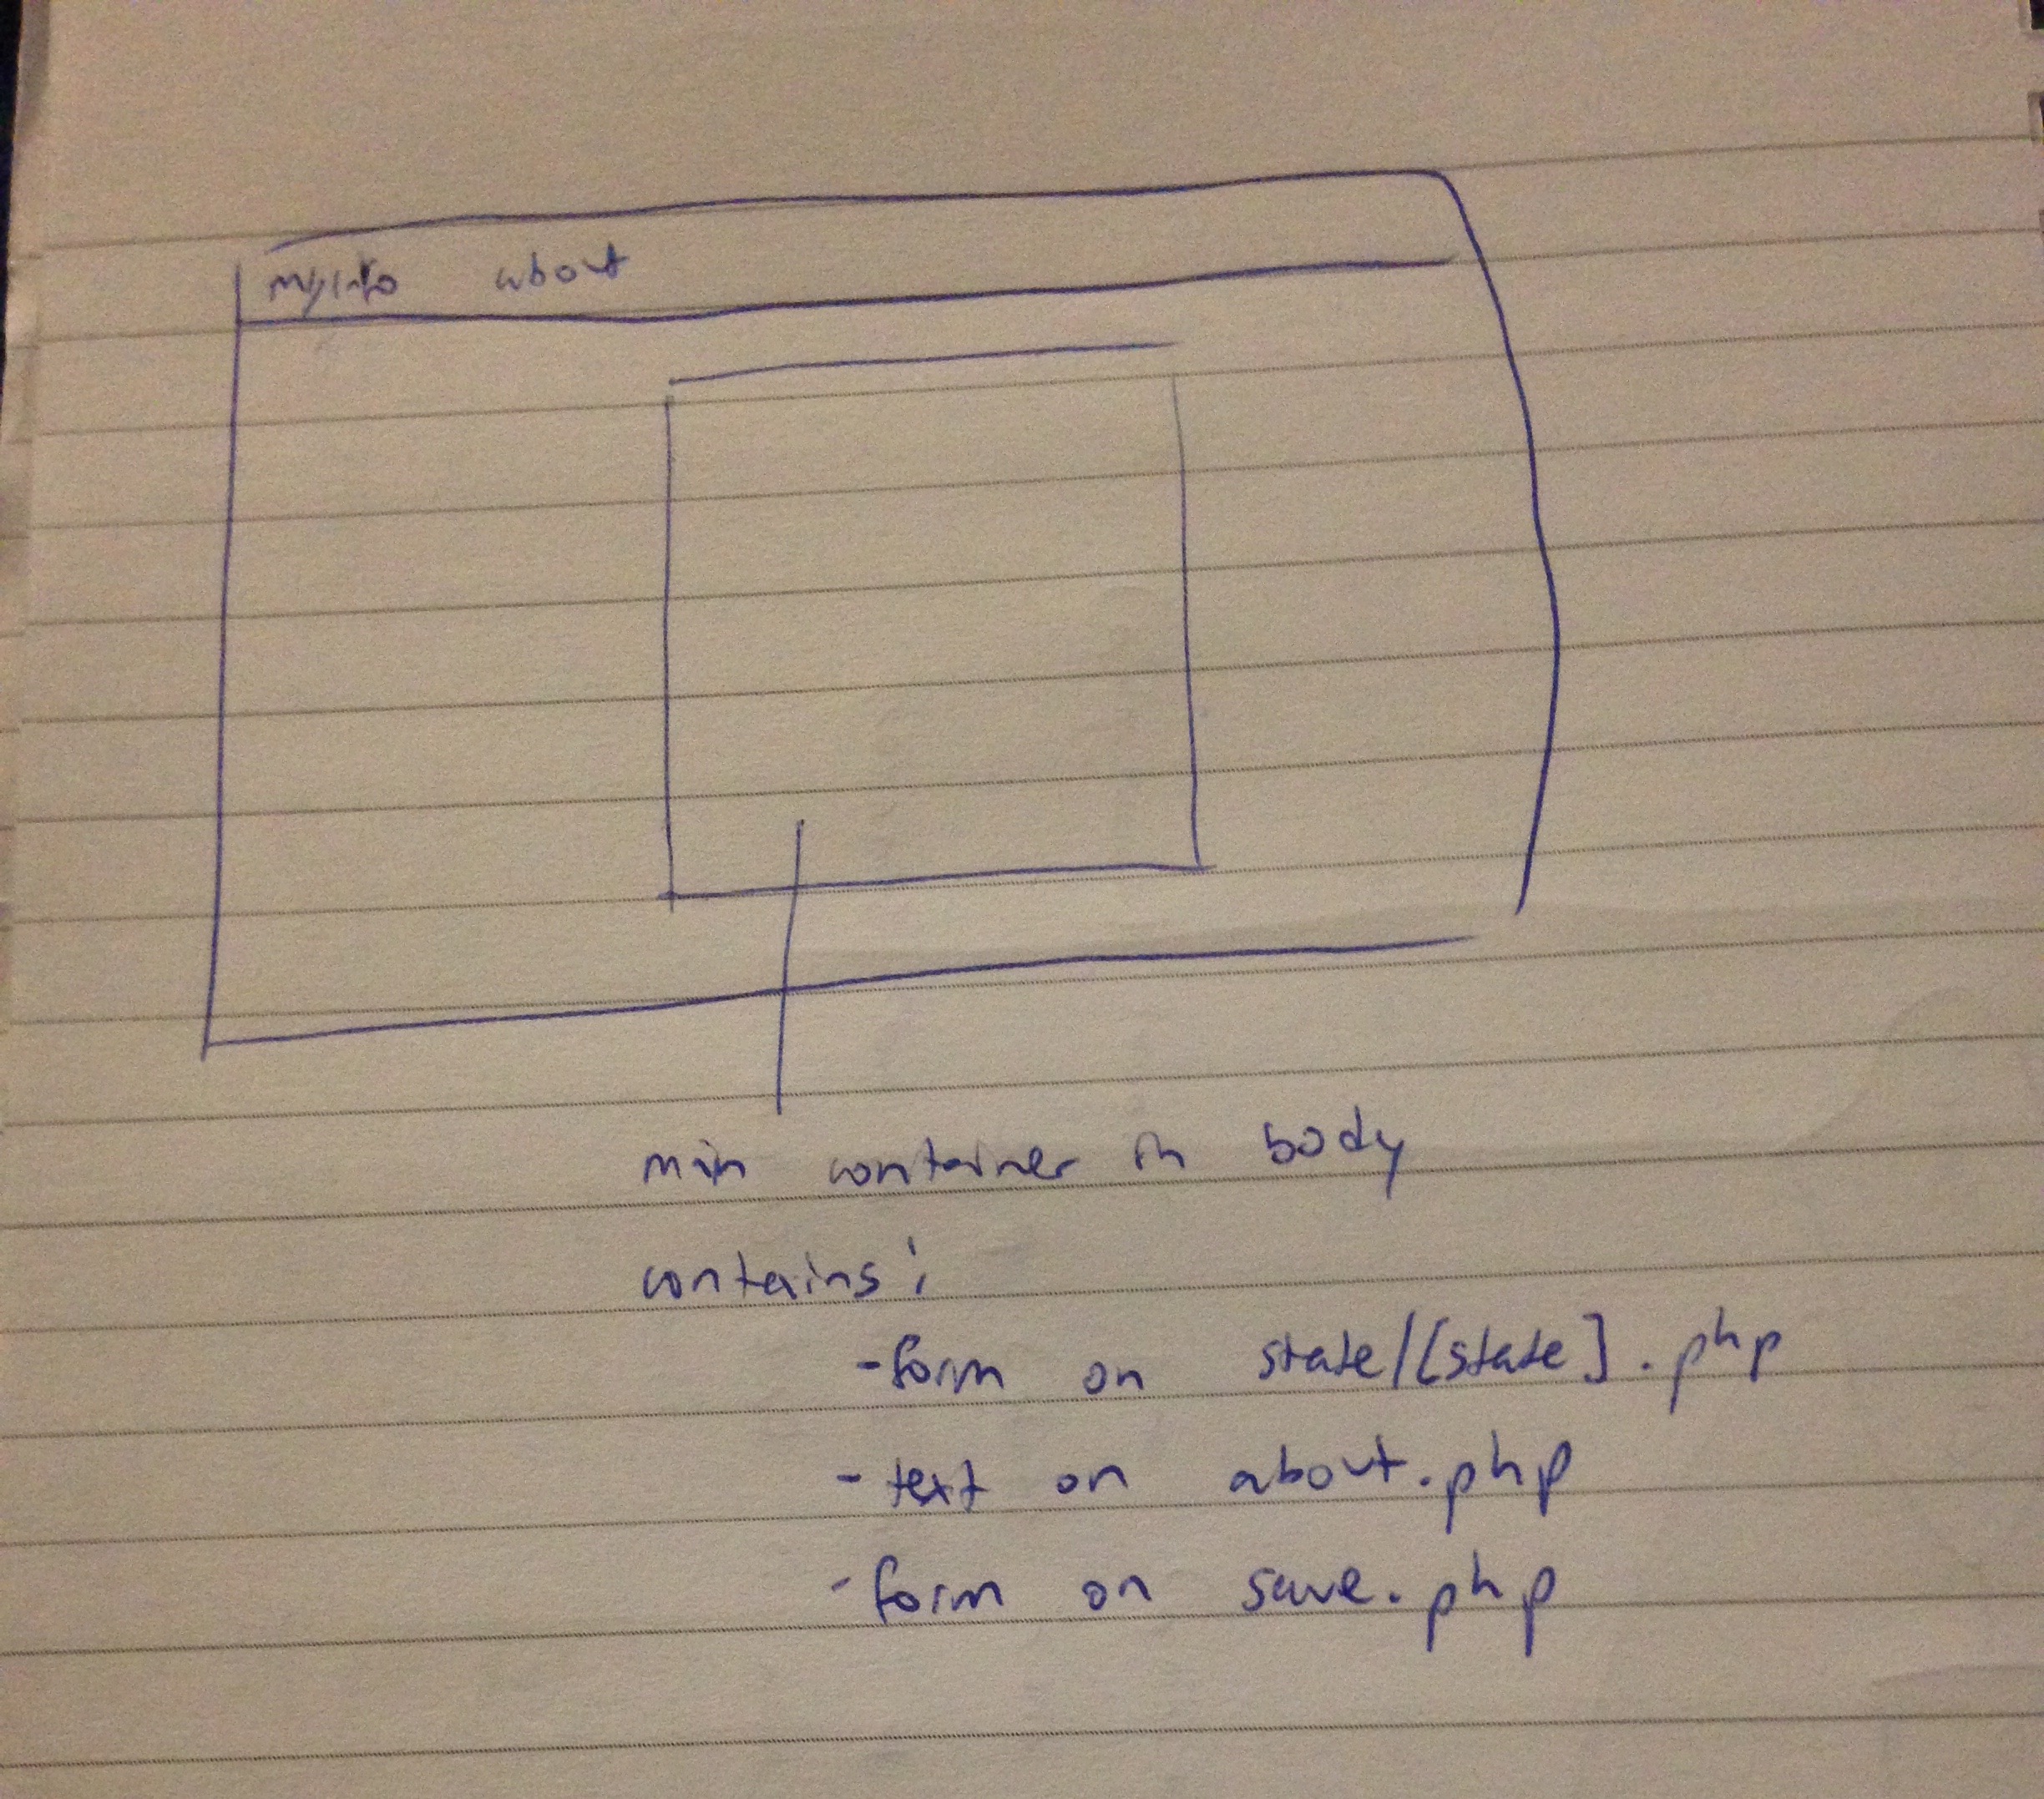 myinfo about
main container in body
contains:
-form on state/[state].php
-text on about.php
-form on save.php